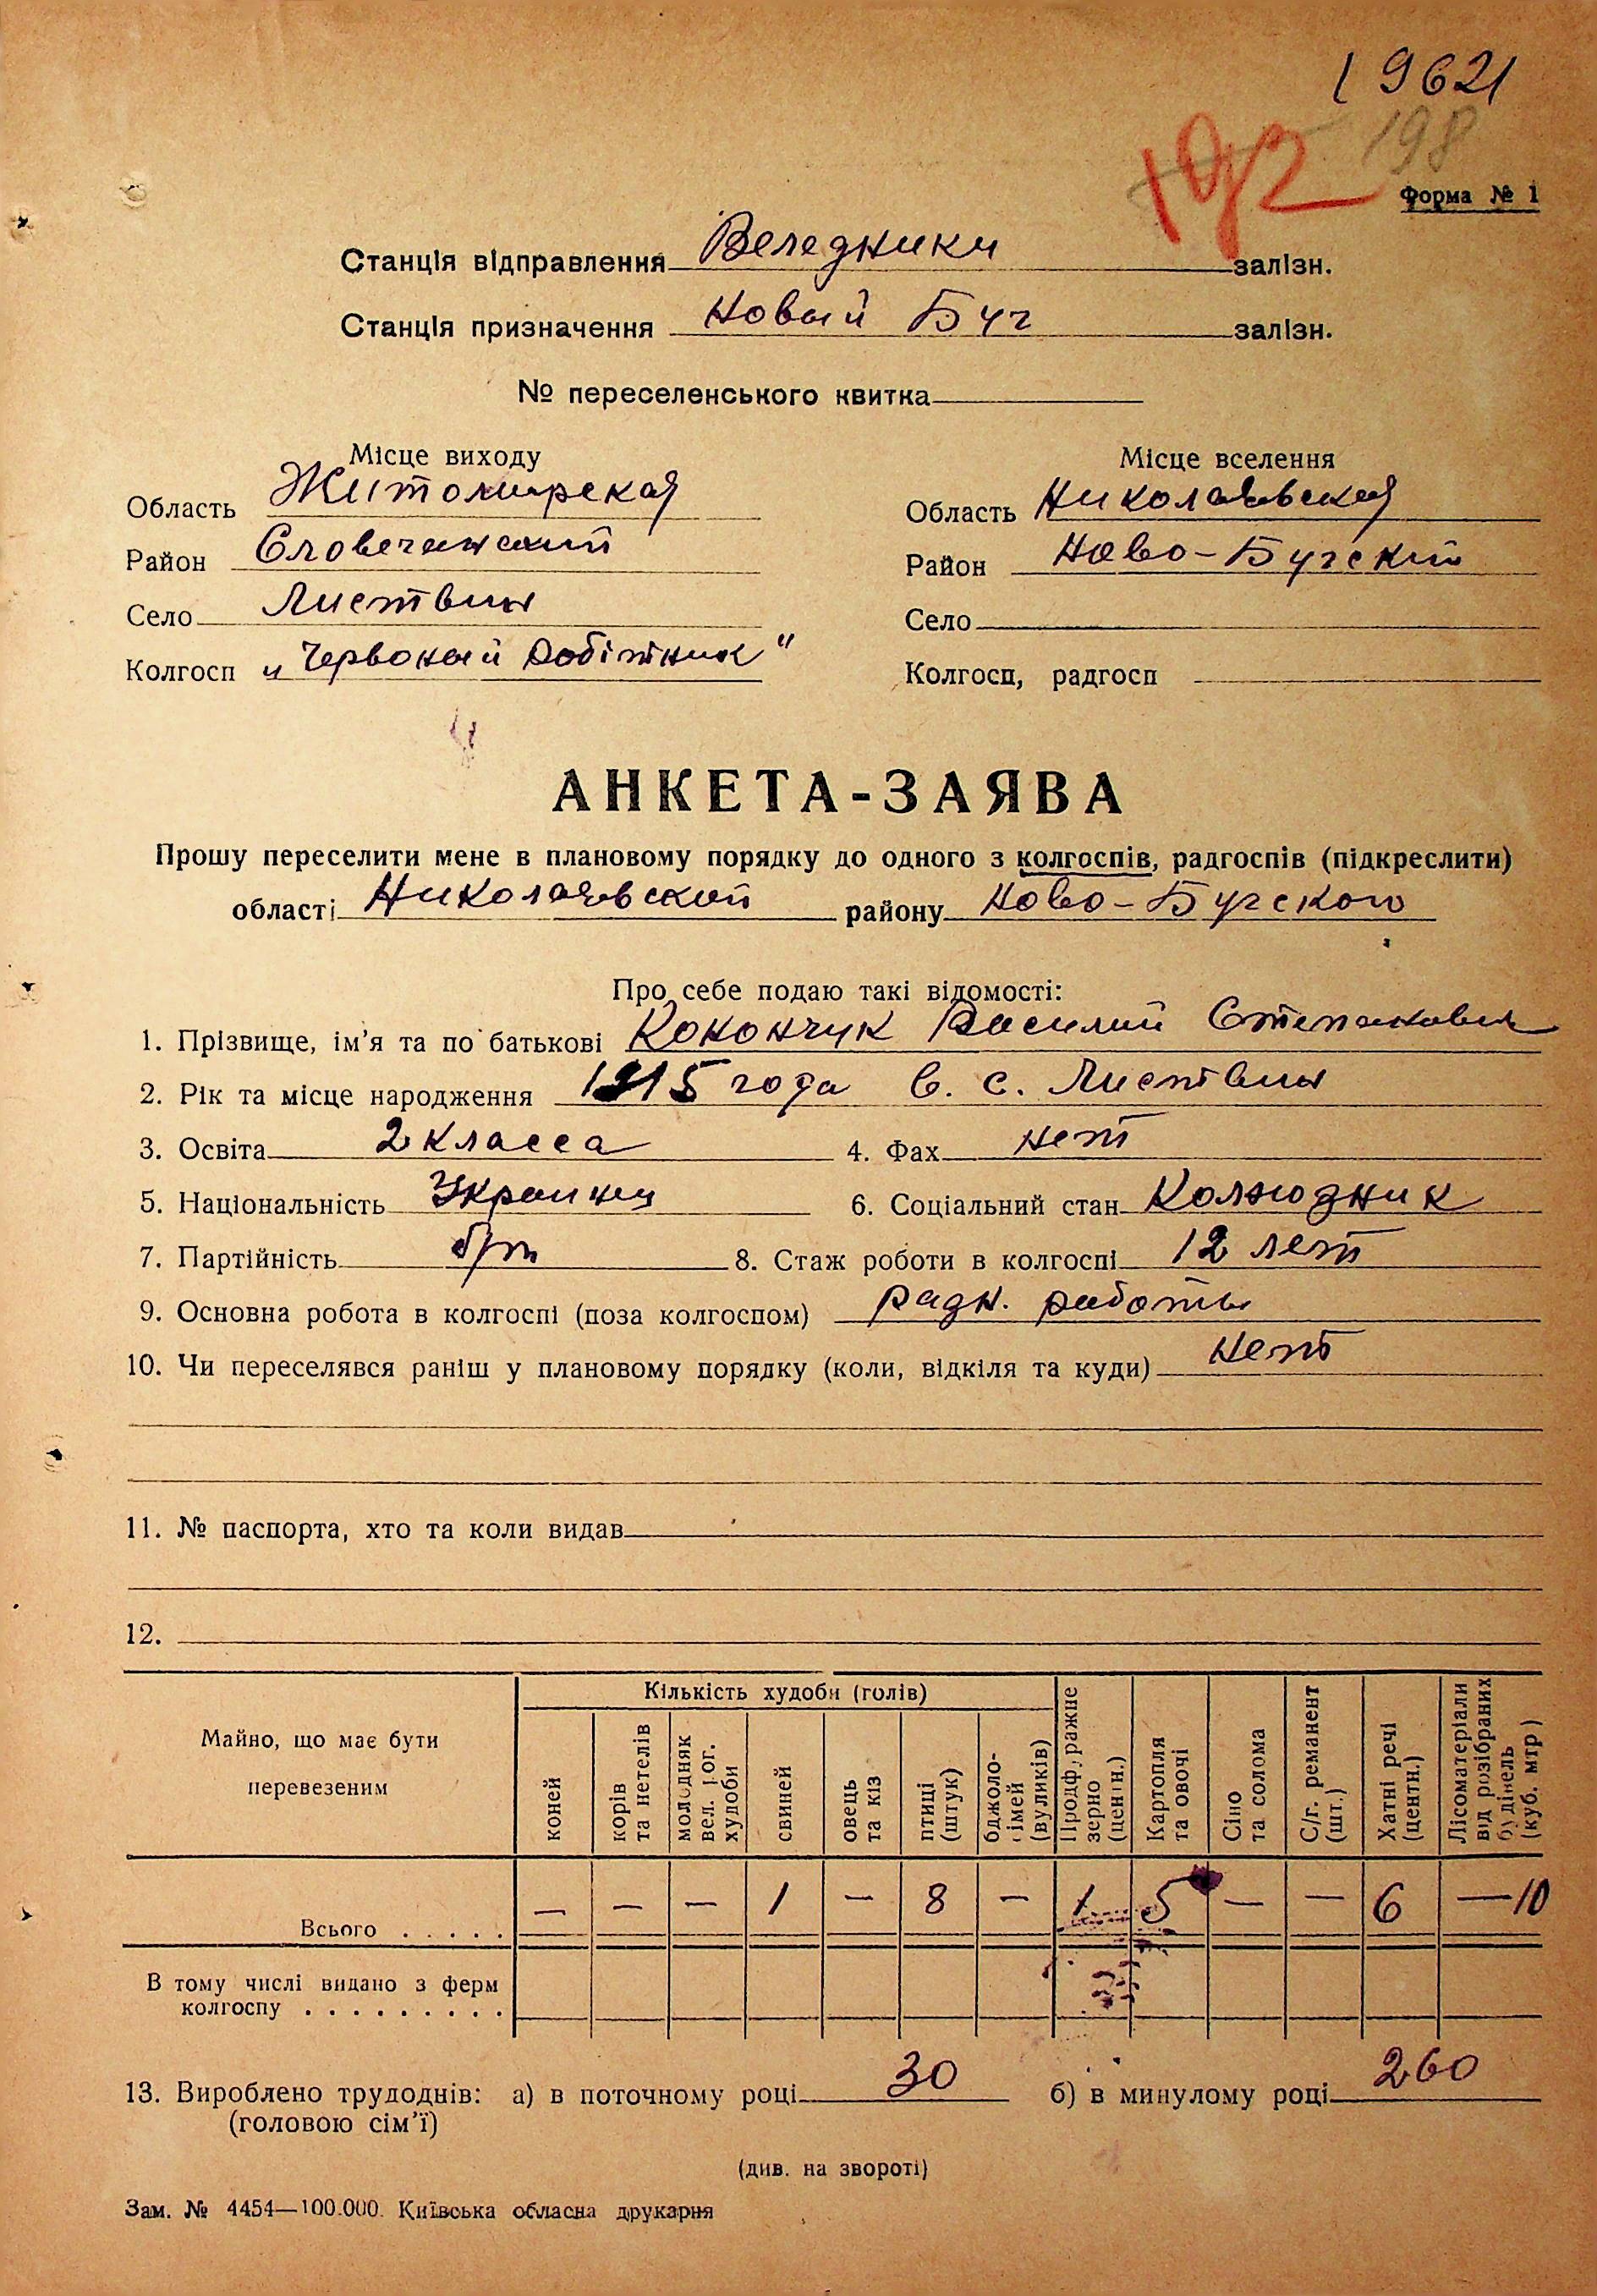 ( 9621
192 198
Форма № 1
Станція відправлення Веледники залізн.
Станція призначення Новый Буг залізн.
№ переселенського квитка
Місце виходу
Область Житомирская
Район Словечанский
Село Листвин
Колгосп „Червоный Робітник"
Місце вселення
Область Николаевская
Район Ново-Бугский
Село
Колгосп, радгосп
АНКЕТА-ЗАЯВА
Прошу переселити мене в плановому порядку до одного з колгоспів, радгоспів (підкреслити)
області Николаевский району Ново-Бугского
Про себе подаю такі відомості:
1. Прізвище, ім'я та по батькові Конончук Василий Степанович
2. Рік та місце народження 1915 года в. с. Листвин
3. Освіта 2 класса 4. Фах нет
5. Національність Украинец 6. Соціальний стан Колхозник
7. Партійність б/п 8. Стаж роботи в колгоспі 12 лет
9. Основна робота в колгоспі (поза колгоспом) радн. работы
10. Чи переселявся раніш у плановому порядку (коли, відкіля та куди) нет
11. № паспорта, хто та коли видав
12.
Майно, що має бути перевезеним
Кількість худоби (голів)
коней
корів та нетелів
молодняк вел. рог. худоби
свиней
овець та кіз
птиці (штук)
бджолосімей (вуликів)
Продфуражне зерно (центн.)
Картопля та овочі
Сіно та солома
С/г. реманент (шт.)
Хатні речі (центн.)
Лісоматеріали від розібраних будівель (куб. мтр)
Всього . . . . . — — — 1 — 8 — 1 5 — — 6 —10
В тому числі видано з ферм
колгоспу . . . . . . . . .
13. Вироблено трудоднів: а) в поточному році 30 б) в минулому році 260
(головою сім'ї)
(див. на звороті)
Зам. № 4454—100.000. Київська обласна друкарня